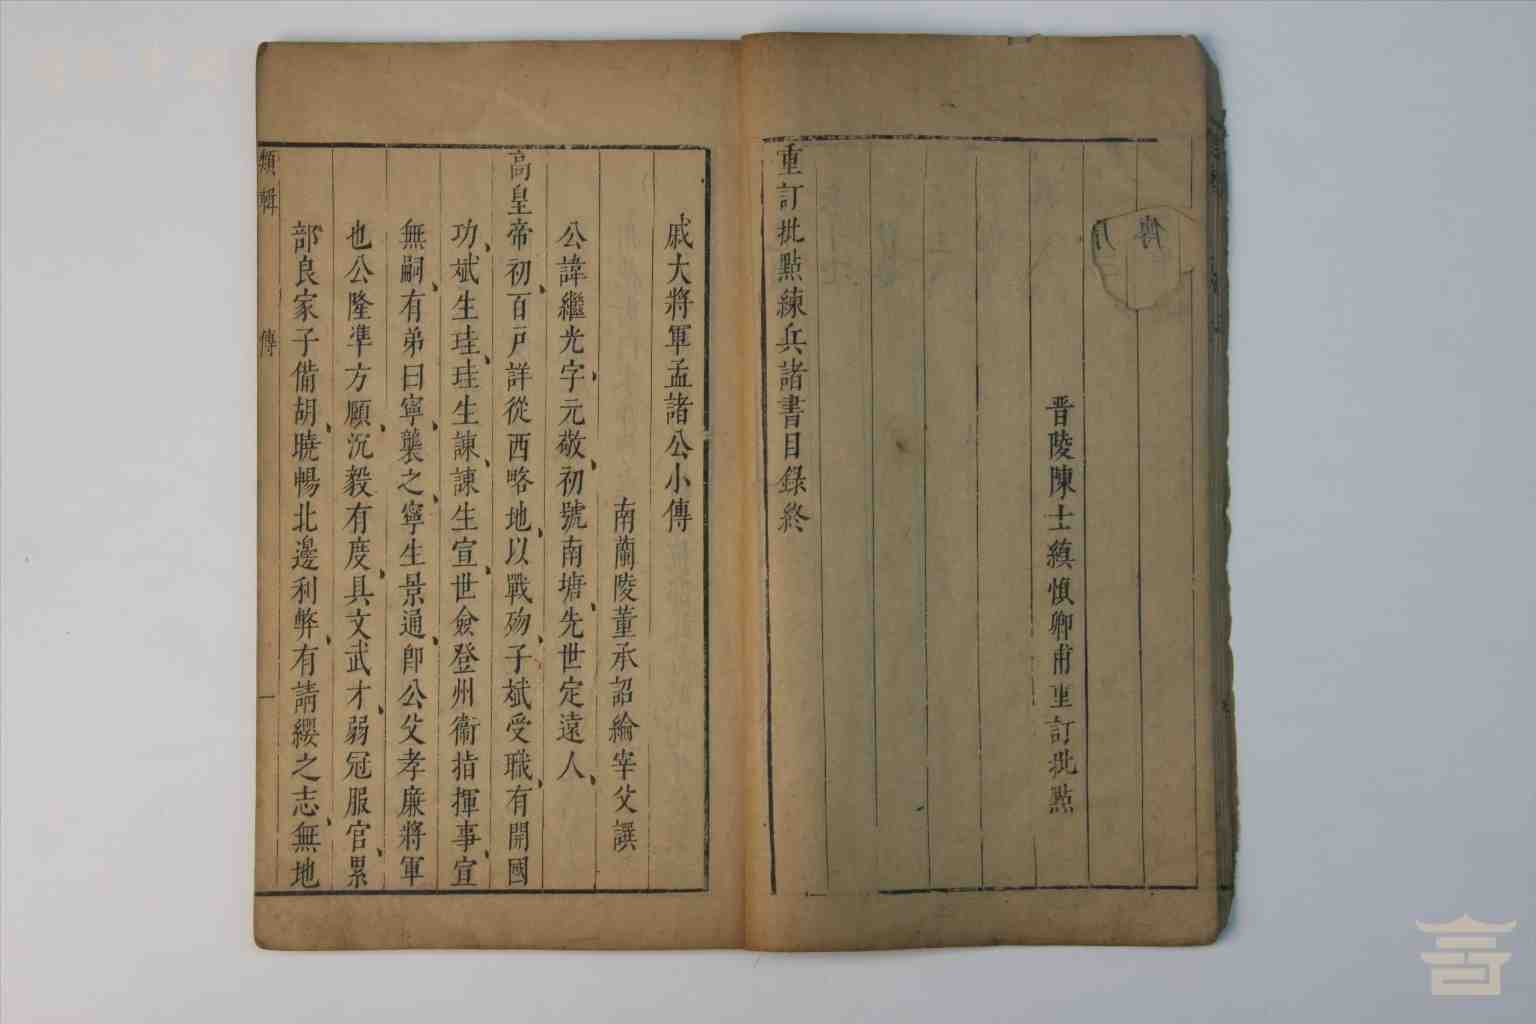 晉陵陳士縝慎卿甫重訂批點
重訂批點練兵諸書目錄終
戚大將軍孟諸公小傳
南蘭陵董承詔綸宰父譔
公諱繼光字元敬初號南塘先世定遠人
高皇帝初百戶詳從西略地以戰殁子斌受職有開國
功斌生珪珪生諫諫生宣世僉登州衞指揮事宣
無嗣有弟曰寧襲之寧生景通卽公父孝廉將軍
也公隆準方願沉毅有度具文武才弱冠服官累
部良家子備胡曉暢北邊利弊有請纓之志無地
類輯 傳 一